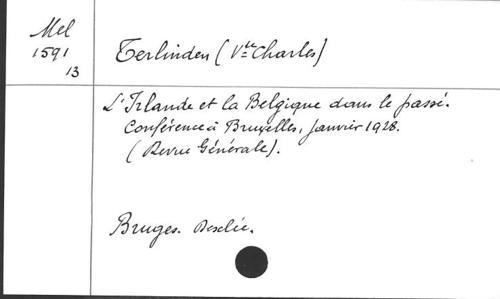 Mel
1591
13
Terlinden (Vte Charles)
L'Irlande et la Belgique dans le passé.
Conférence à Bruxelles, Janvier 1928.
(Revue Générale).
Bruges. Desclée.